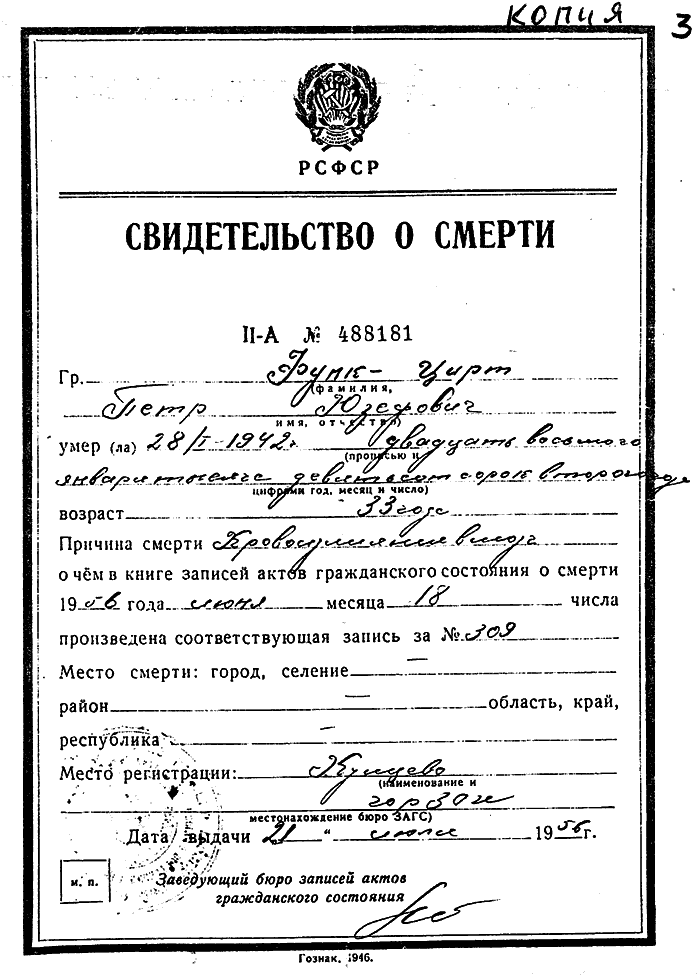 КОПИЯ 3
РСФСР
СВИДЕТЕЛЬСТВО О СМЕРТИ
II-А № 488181
Гр. Функ-Цирт
(фамилия,
Петр Юзефович
имя, отчество)
умер (ла) 28/I-1942г. двадцать восьмого
(прописью и
января тысяча девятьсот сорок второго года
цифрами год, месяц и число)
возраст 33 года
Причина смерти Кровоизлияние в мозг
о чём в книге записей актов гражданского состояния о смерти
1956 года июня месяца 18 числа
произведена соответствующая запись за № 309
Место смерти: город, селение —
район — область, край,
республика —
Место регистрации:
(наименование и
местонахождение бюро ЗАГС)
Дата выдачи 21 " 1956г.
м. п.
Заведующий бюро записей актов
гражданского состояния
Гознак. 1946.